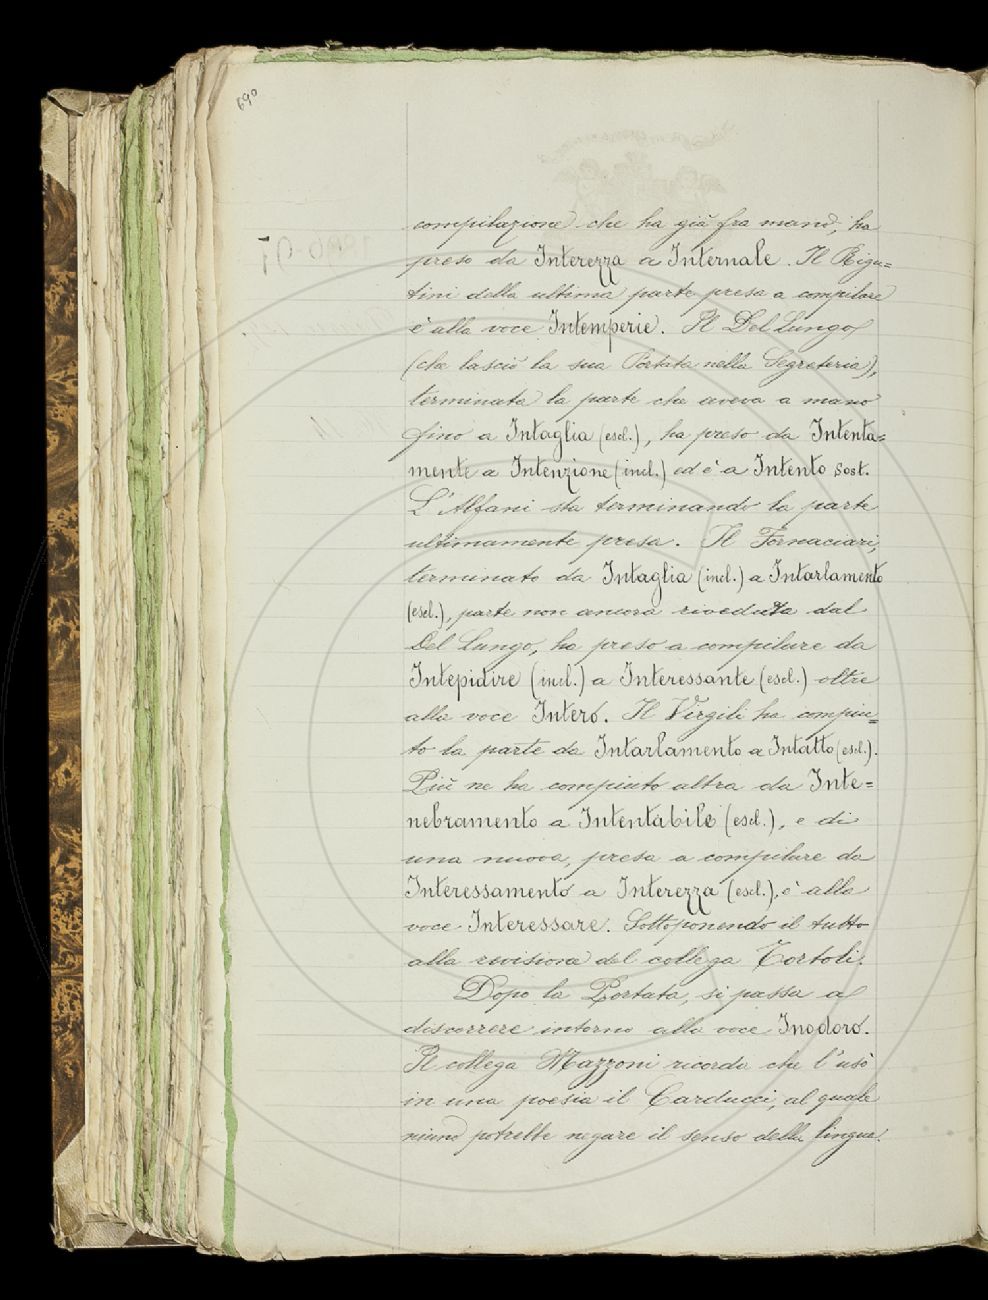 690
compilazione che ha già fra mano, ha
preso da Interezza a Internale. Il Rigu=
tini della ultima parte presa a compilare
è alla voce Intemperie. Il Del Lungo
(che lasciò la sua Portata nella Segreteria),
terminata la parte che aveva a mano
fino a Intaglia (escl.), ha preso da Intenta=
mente a Intenzione (incl.) ed è a Intento Sost.
L'Alfani sta terminando la parte
ultimamente presa. Il Fornaciari,
terminato da Intaglia (incl.) a Intarlamento
(escl.), parte non ancora riveduta dal
Del Lungo, ha preso a compilare da
Intepidire (incl.) a Interessante (escl.) oltre
alla voce Intero. Il Virgili ha compiu=
to la parte da Intarlamento a Intatto (escl.).
Più ne ha compiuto altra da Inte=
nebramento a Intentabile (escl.), e di
una nuova, presa a compilare da
Interessamento a Interezza (escl.), è alla
voce Interessare. Sottoponendo il tutto
alla revisione del collega Tortoli.
Dopo la Portata, si passa a
discorrere intorno alla voce Inodoro.
Il collega Mazzoni ricorda che l'usò
in una poesia il Carducci, al quale
niuno potrebbe negare il senso della lingua.